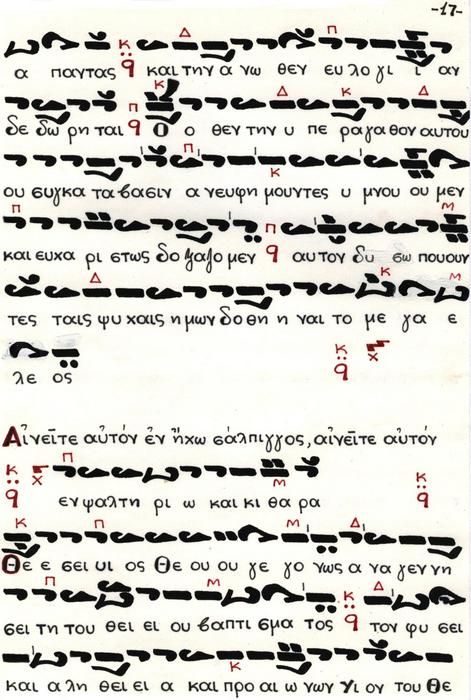 -17-
Κ Δ Π
α παντας q και την α νω θεν ευ λο γι ι αν
Π Κ Δ Κ Δ
δε δω ρη ται q Ο ο θεν την υ πε ραγαθον αυτου
Π Κ
ου συγκα τα βασιν α νευφη μουντες υ μνου ου μεν
Π Π Μ
και ευχα ρι στως δο ξαζο μεν q αυτον δυ σω πουουν
Δ Κ Μ
τες ταις ψυ χαις ημων δο θη η ναι το με γα ε
Κ
λε ος q χ
Αἰνεῖτε αὐτόν ἐν ἤχω σάλπιγγος, αἰνεῖτε αὐτόν
Κ χ Π Μ Κ
q εν ψαλτη ρι ω και κι θα ρα q
Κ Π Μ Δ
Θε ε σει υι ος Θε ου ου γε γο νως α να γεν νη
Π Μ Κ Δ
σει τη του θει ει ου βαπτι σμα τος q τον φυ σει
Κ
και α λη θει ει α και προ αι ω νων Υι ον του Θε